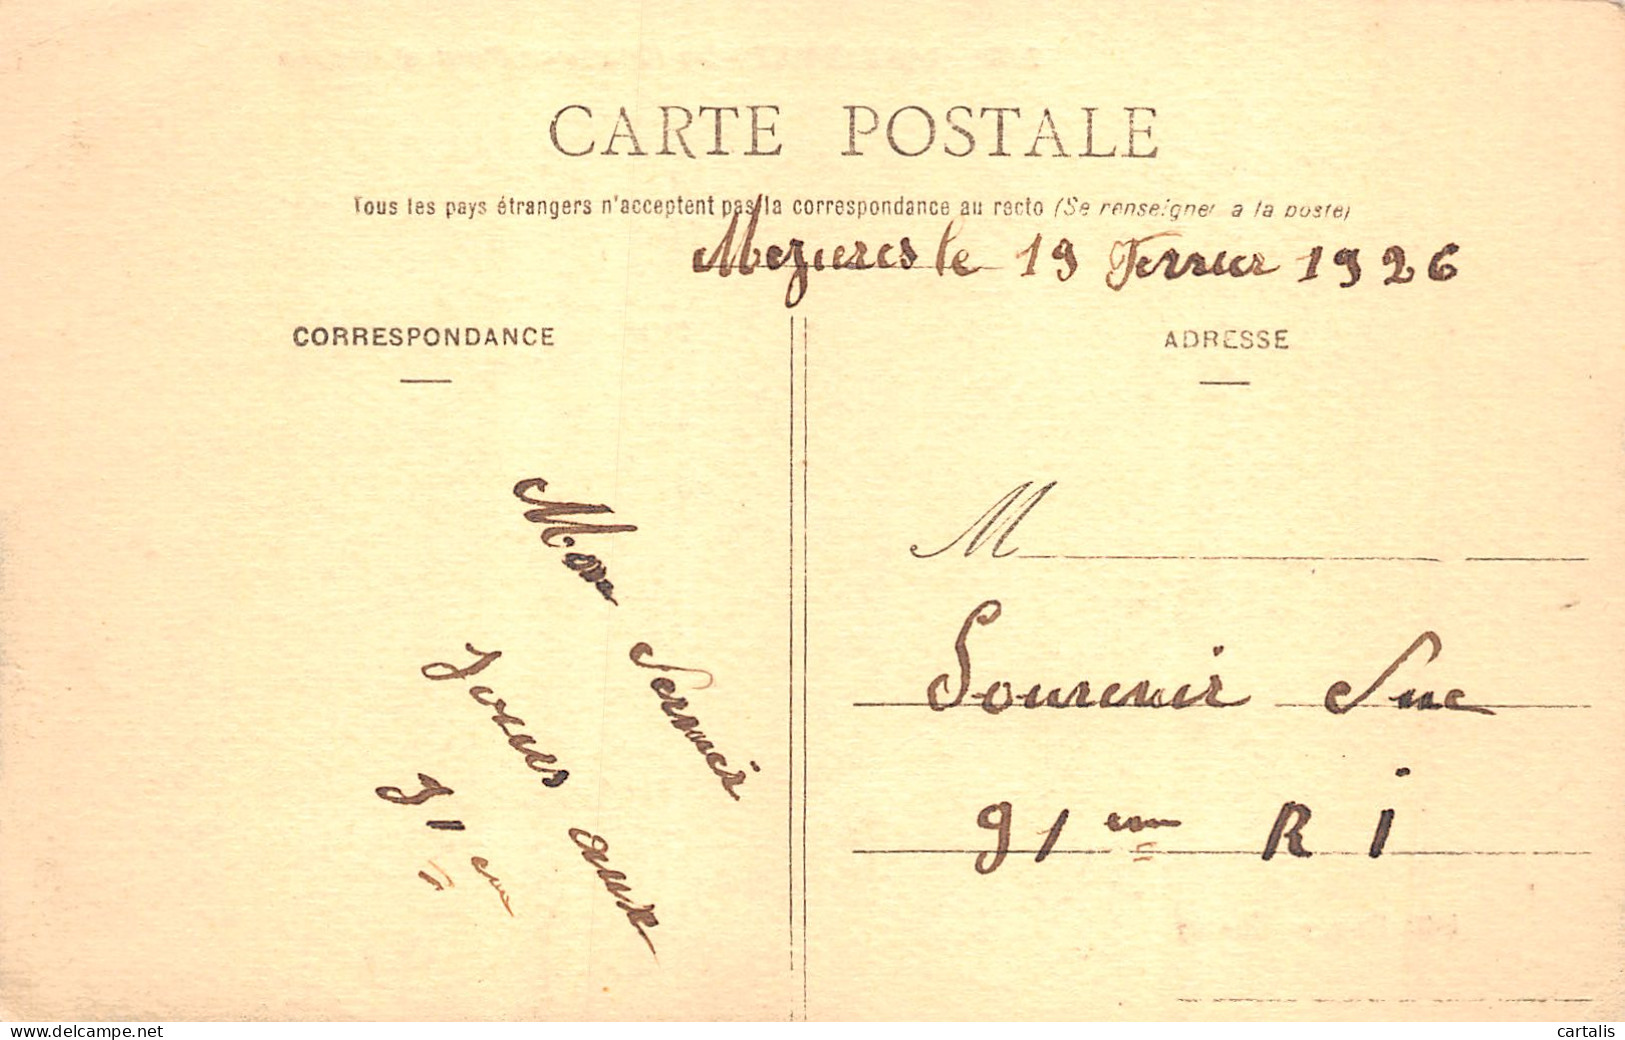 CARTE POSTALE
Tous les pays étrangers n'acceptent pas la correspondance au recto (Se renseigner a la poste)
Mezieres le 19 Fevrier 1926
CORRESPONDANCE
ADRESSE
Mon dernier
Jours aux
91 em
M
Souvenir
91 em R I
www.delcampe.net
cartalis